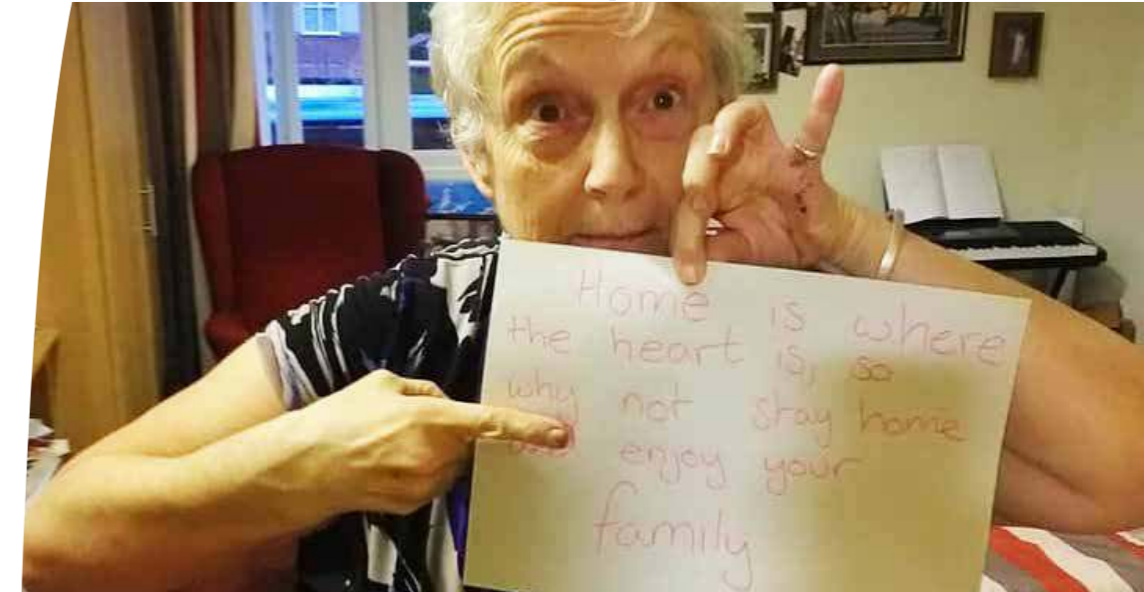 Home is where
the heart is, so
why not stay home
enjoy your
family